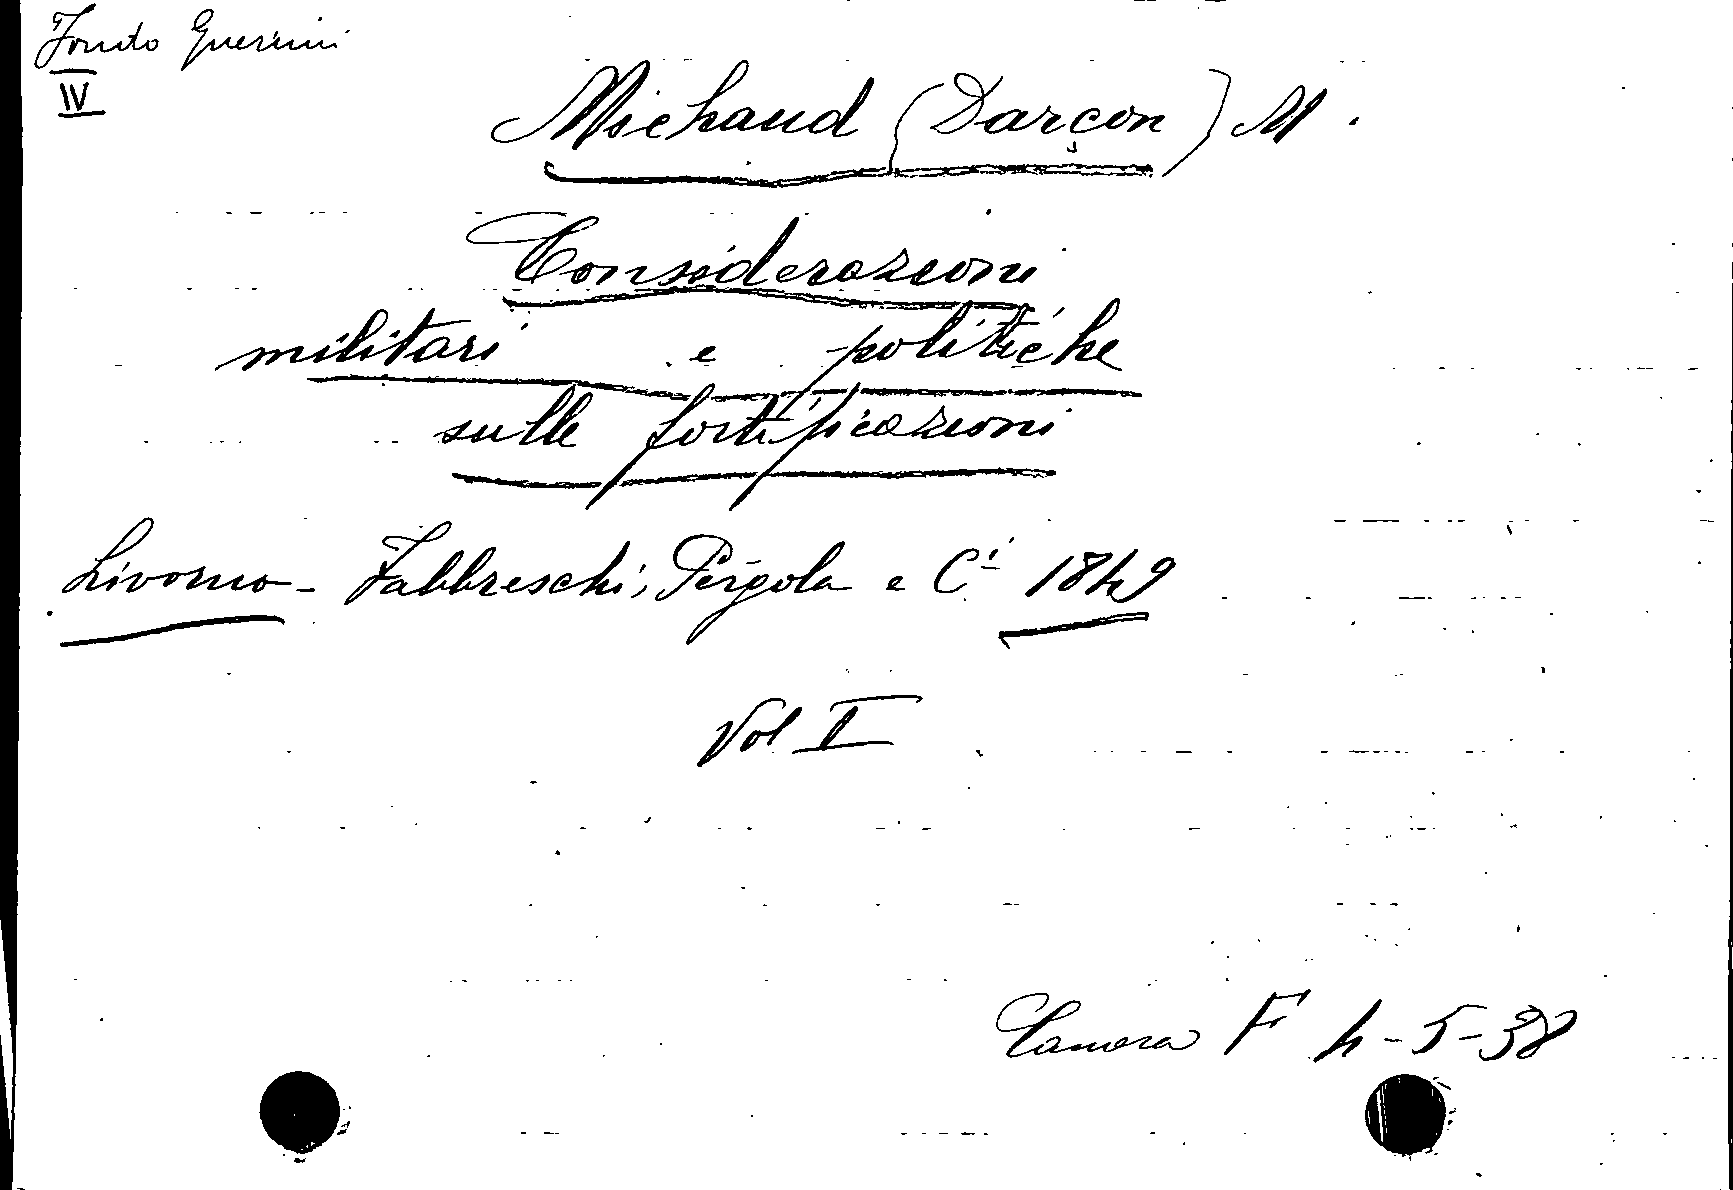 Fondo Guerini
IV
Michaud (Darçon) M.
Considerazioni
militari e politiche
sulle fortificazioni
Livorno - Fabbreschi, Pergola e Ci 1849
Vol I
Camera F 4-5-38